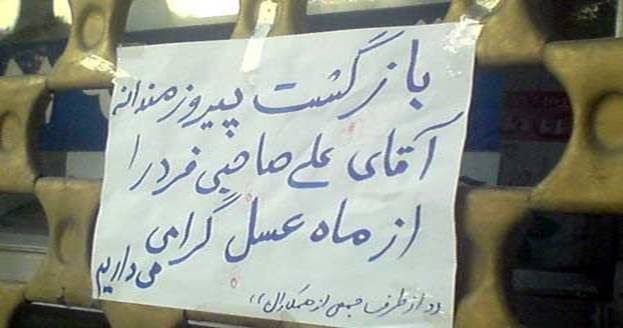 بازگشت پیروزمندانه
آقای علی صاحبی فرد را
از ماه عسل گرامی
می داریم
,, از طرف جمعی از همکاران ,,